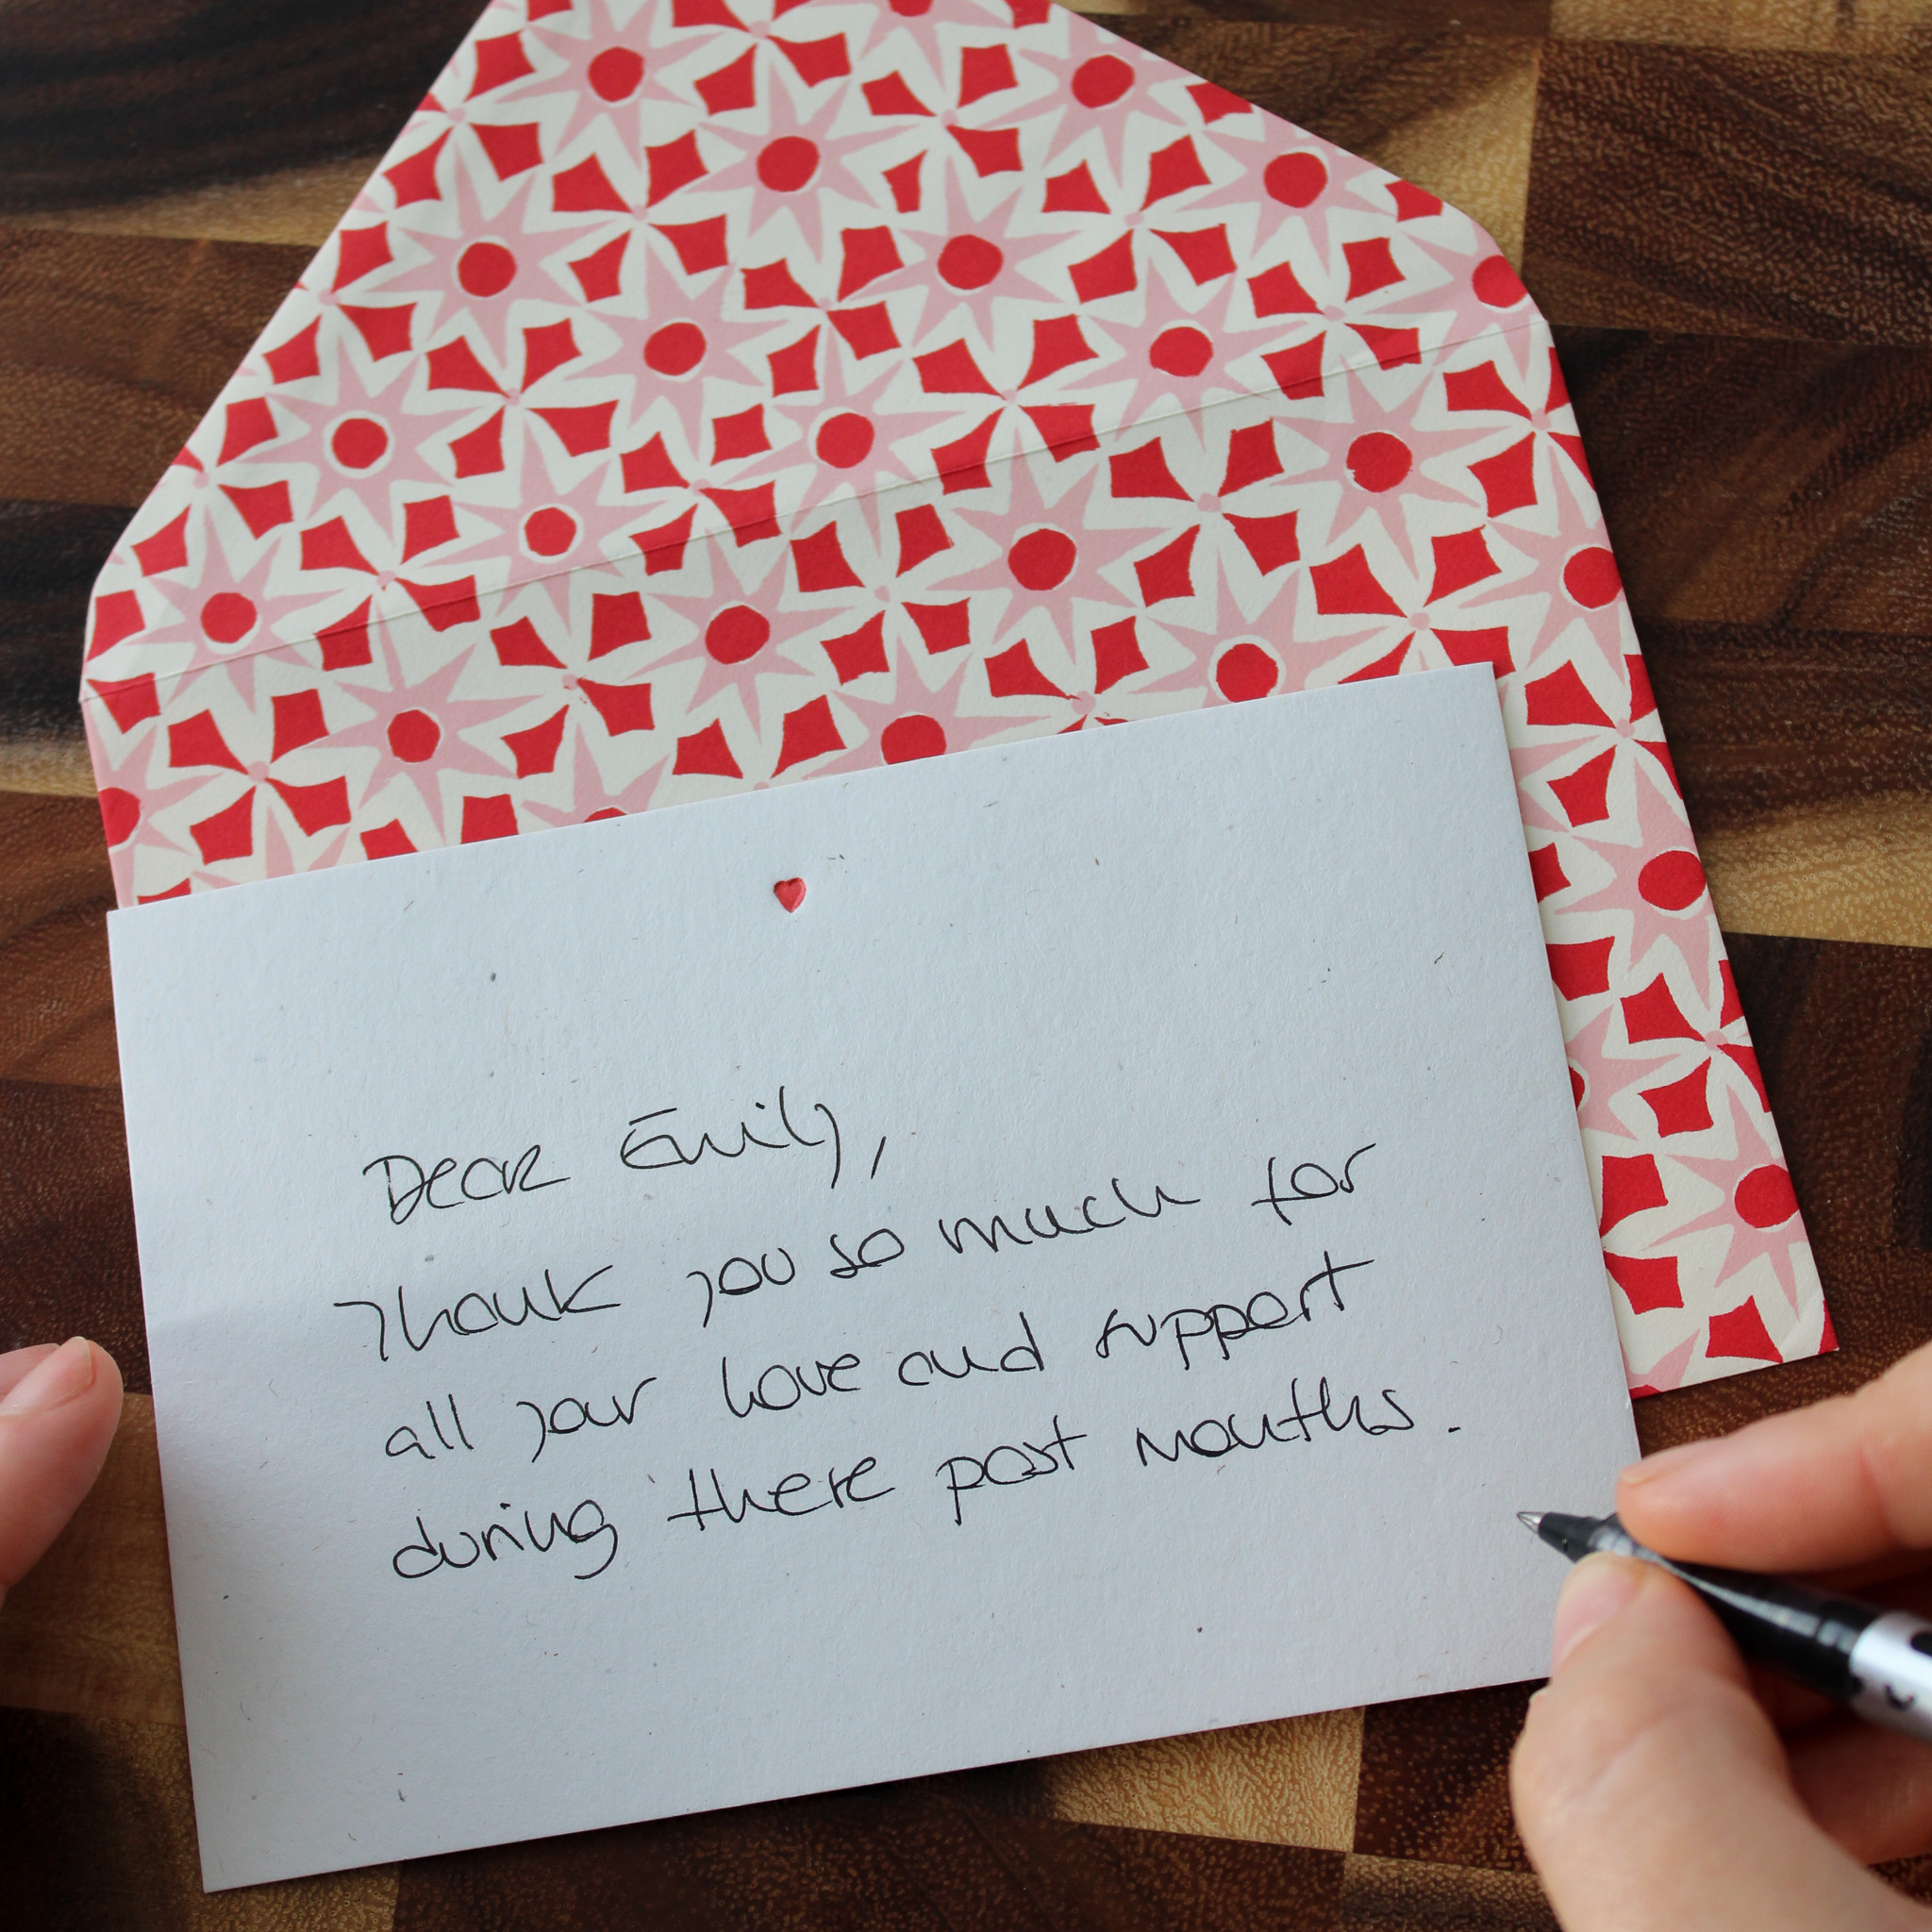 Dear Emily,
Thank you so much for
all your love and support
during these past months.